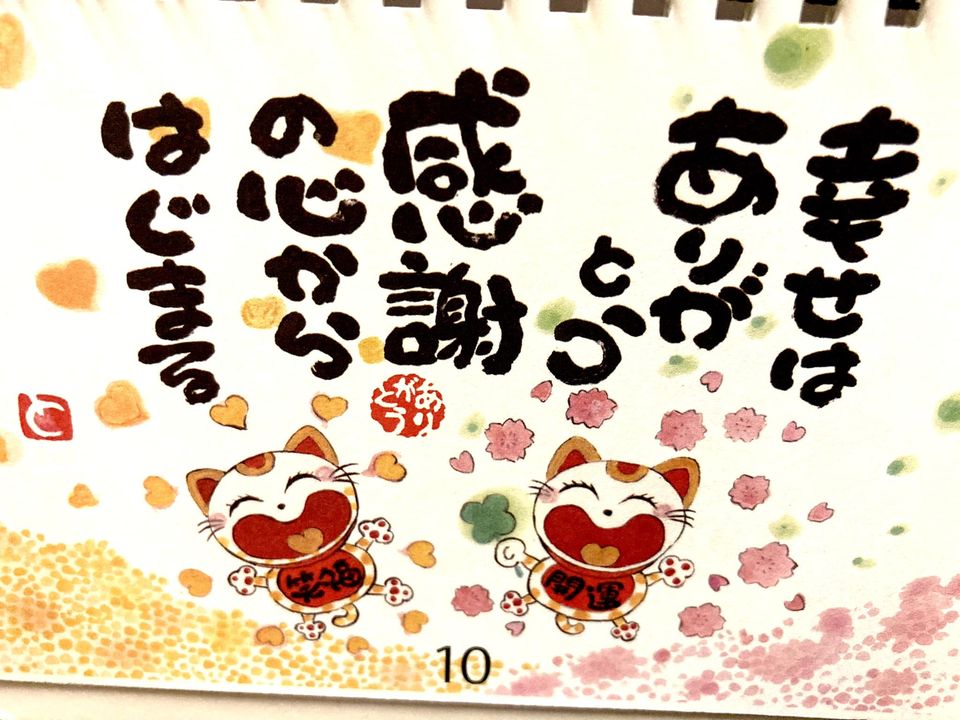 幸せは
ありが
とう
感謝
の心から
はじまる
ありがとう
こ
笑福
開運
10